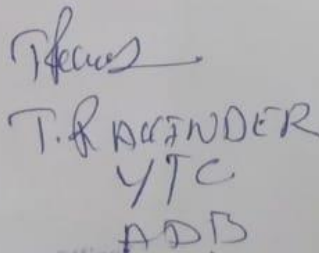 T. RAVINDER
YTC
ADB